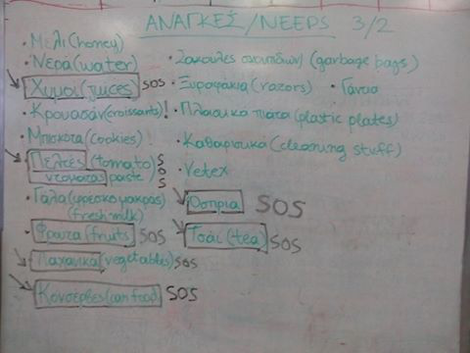 ΑΝΑΓΚΕΣ/NEEDS 3/2
· Μελι (honey)
· Νερα (water)
Χυμοι (juices) SOS
· Κρουασάν (croissants)!
· Μπισκοτα (cookies) !
· Πελτές (tomato SOS
ντοματας paste)
· Γαλα (φρεσκο μακρας)
(fresh milk)
· Φρουτα (fruits) SOS
· Λαχανικά (vegetables) SOS
· Κονσέρβες (can food) SOS
· Σακουλες σκουπιδιών (garbage bags)
· Ξυραφακια (razors) · Γάντια
· Πλαστικά πιατα (plastic plates)
· Καθαριστικά (cleaning stuff)
· Vetex
Οσπρια SOS
· Τσάι (tea) SOS